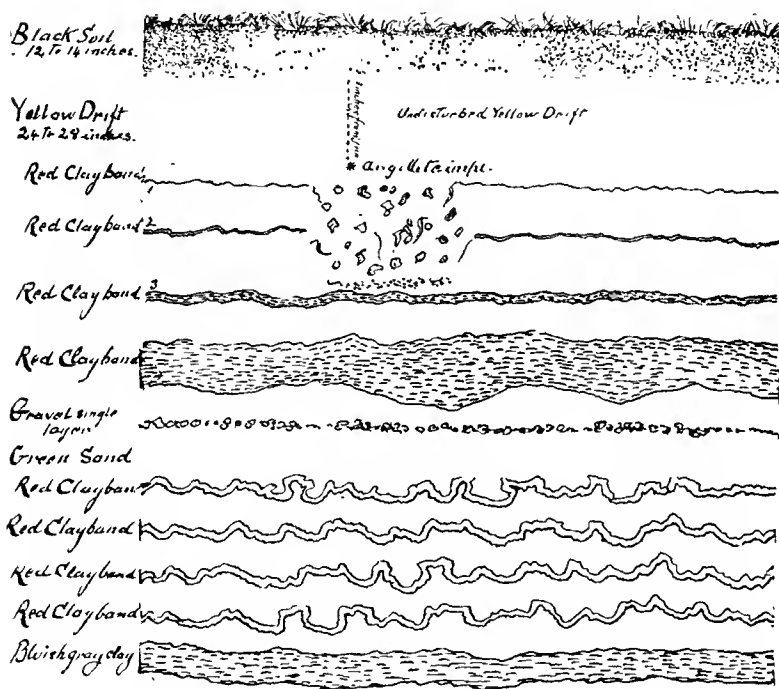 Black Soil
12 to 14 inches.
Yellow Drift
24 to 28 inches.
Undisturbed Yellow Drift
Red Clayband
Red Clayband 2
Red Clayband 3
Red Clayband
Gravel single
layer
Green Sand
Red Clayban
Red Clayband
Red Clayband
Red Clayband
Bluish gray clay